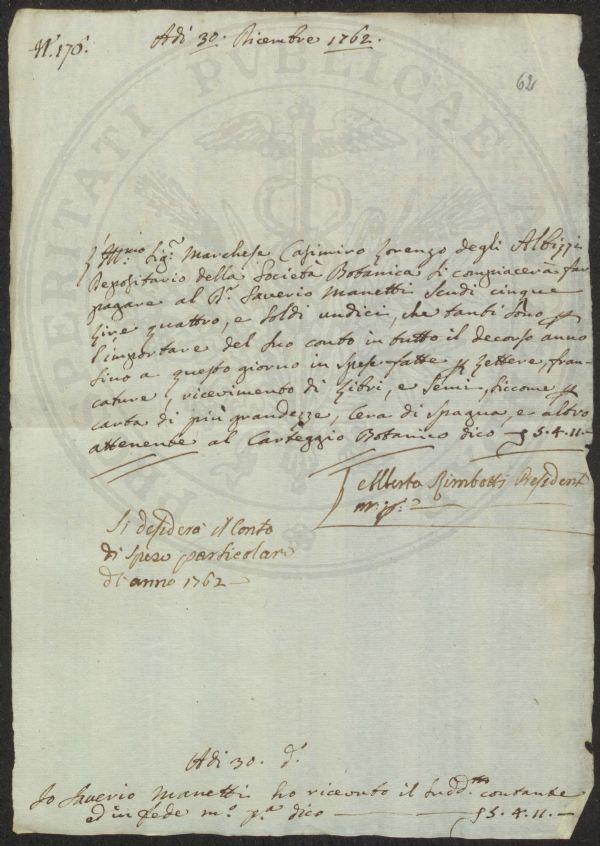 N.° 176.
Adì 30. Dicembre 1762.
62
L'Ill.mo Sig.r Marchese Casimiro Lorenzo degli Albizzi
Depositario della Società Botanica si compiacerà far
pagare al D.r Saverio Manetti Scudi cinque
Lire quattro, e soldi undici, che tanti sono p
l'importare del suo conto in tutto il decorso anno
sino a questo giorno in spese fatte p Lettere, fran-
cature, ricevimento di Libri, e Semi, siccome p
carta di più grandezze, cera di Spagna, e altro
attenente al Carteggio Botanico dico 5.4.11.-
Alberto Rimbotti President
m. p.
Si desidera il Conto
di spese particolari
dell'anno 1762
Adì 30. d.°
Io Saverio Manetti ho ricevuto il sudd.tto contante
ed in fede m.° p.a dico 5.4.11.-
PERITATI PUBLICAE